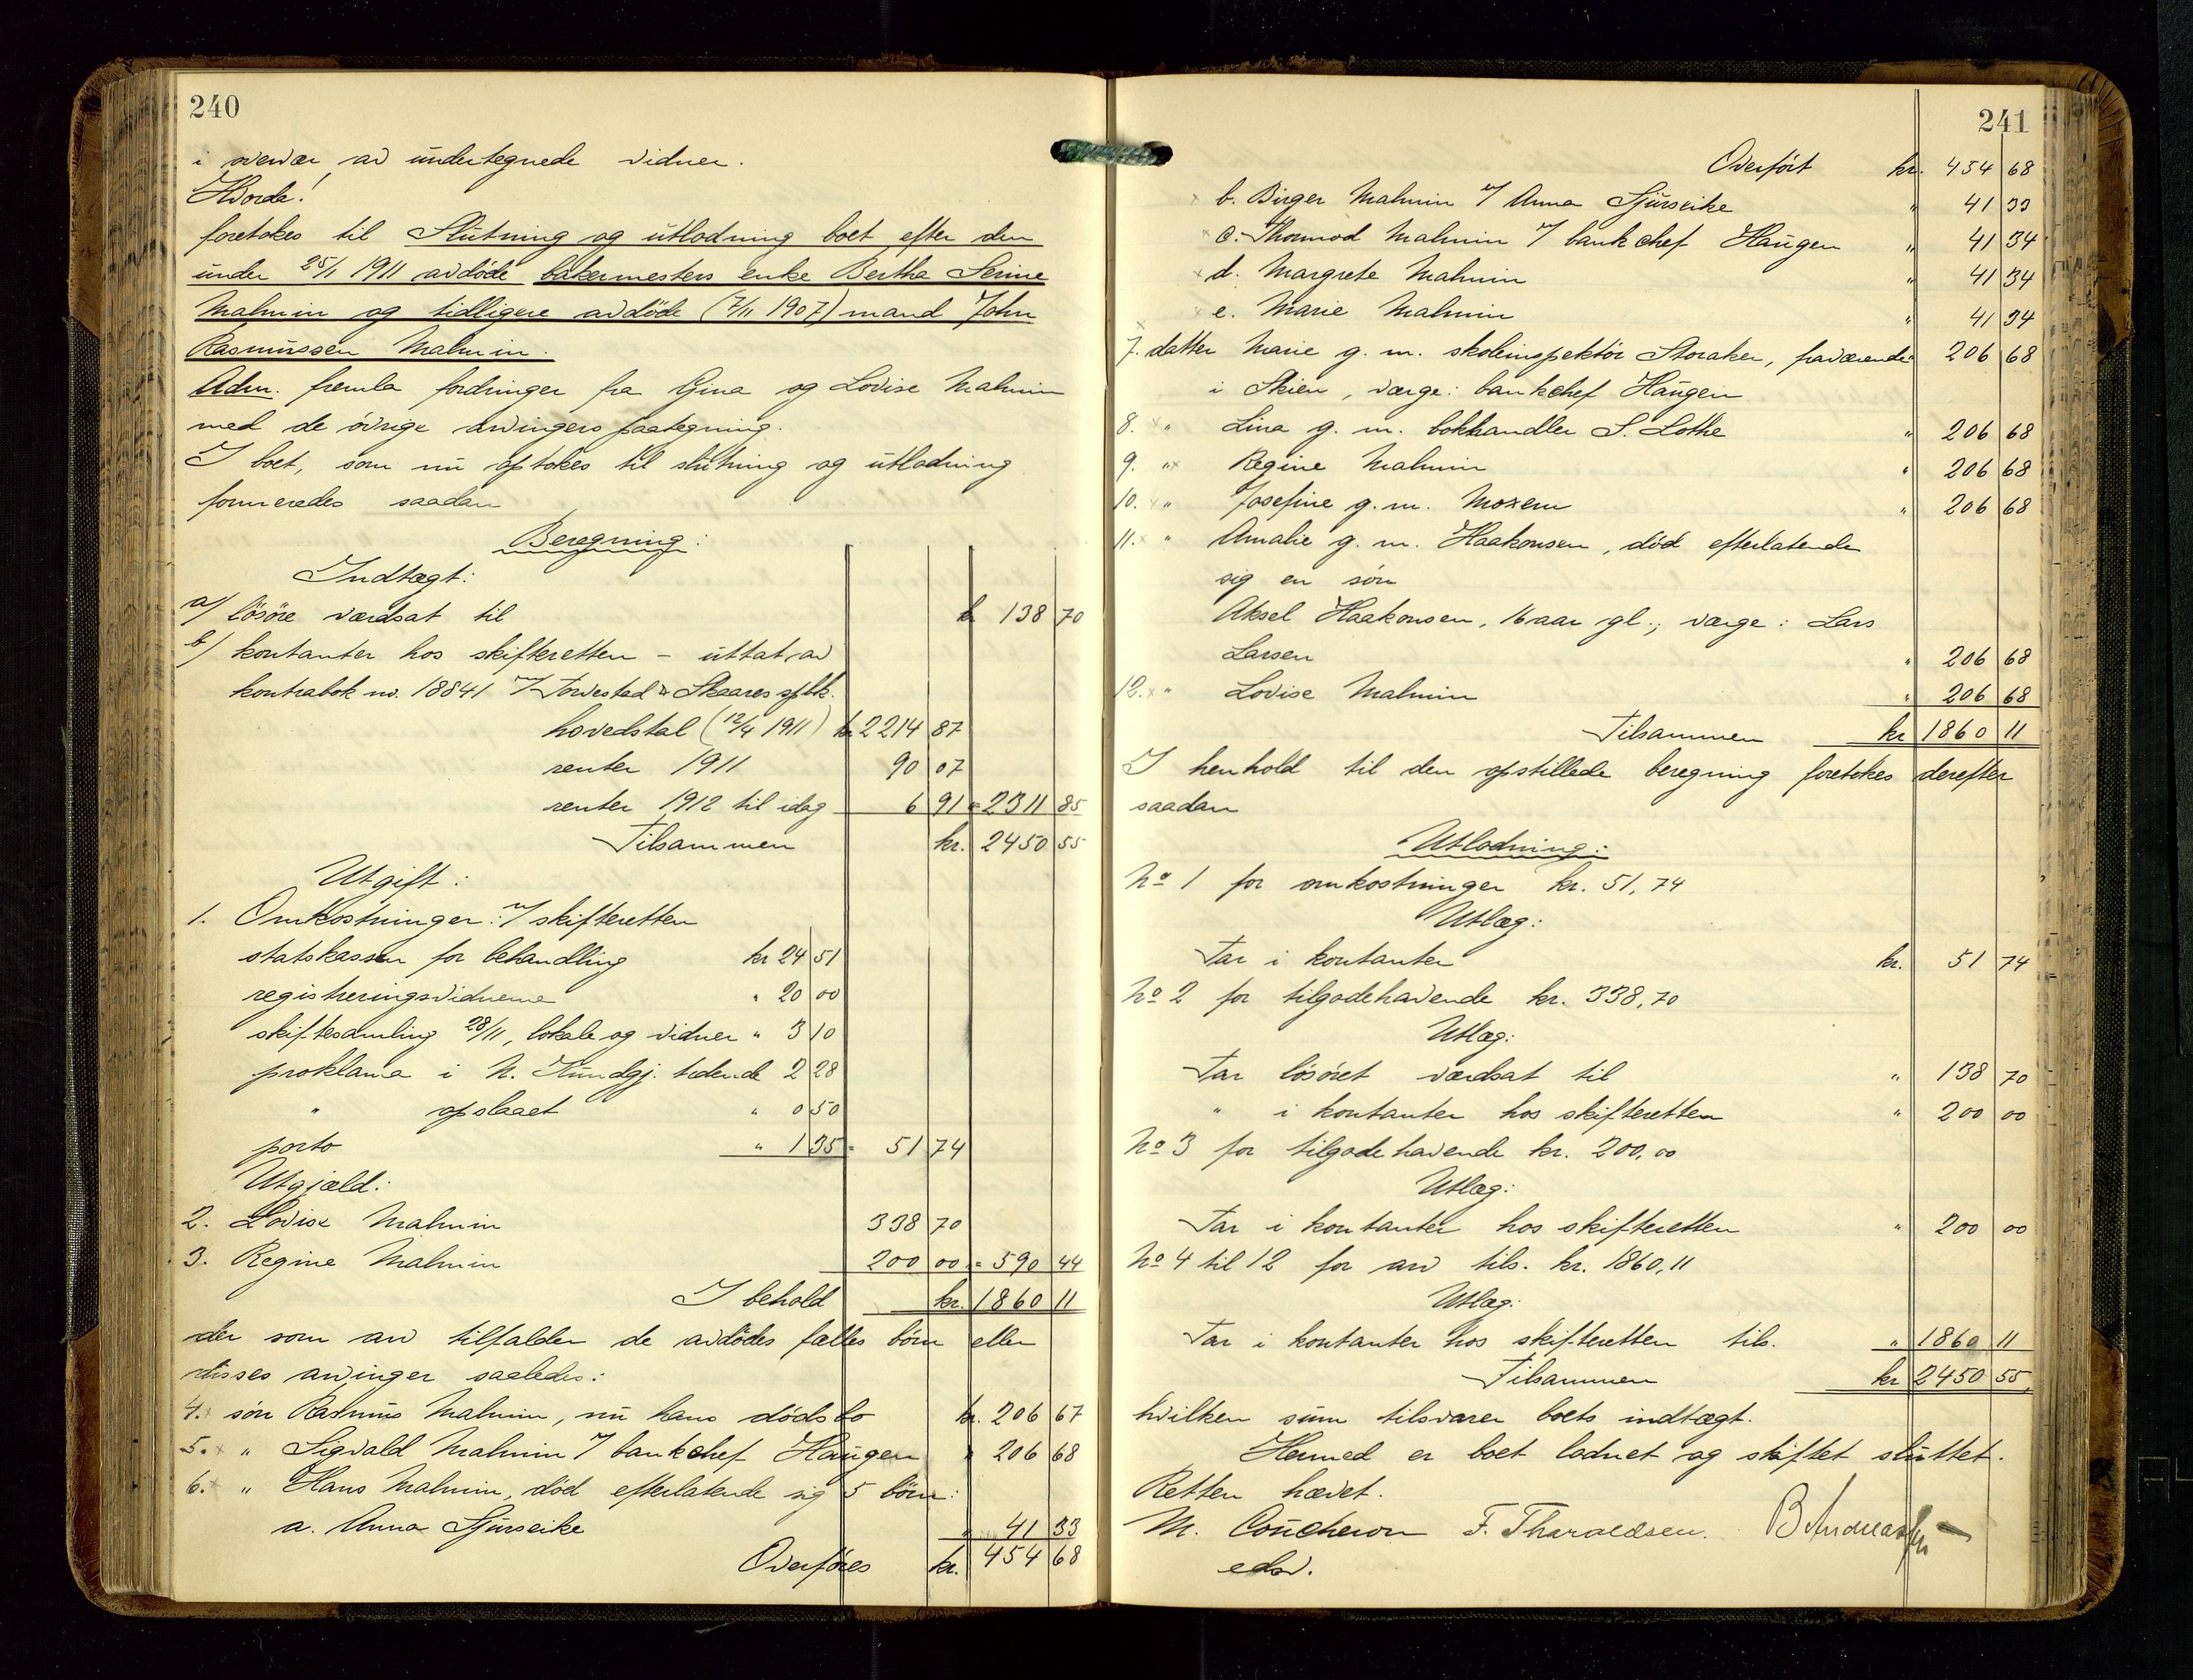 240
i overvær av undertegnede vidner.
Hvorda!
foretokes til Slutning og utlodning boet efter den
under 25/1 1911 avdöde bakermesters enke Bertha Serine
Malmin og tidligere avdöde (7/11 1907) mand John
Rasmussen Malmin.
Adm. fremla fordringer fra Gina og Lovise Malmin
med de övrige arvingers paategning.
I boet, som nu optokes til slutning og utlodning
formeredes saadan
Beregning:
Indtægt:
a/ lösöre værdsat til kr 138 70
b/ kontanter hos skifteretten - uttat av
kontrabok no. 18841 i/ Torvestad & Skaares spbk.
hovedstol (12/4 1911) kr 2214 87
renter 1911 90 07
renter 1912 til idag 6 91 = 2311 85
Tilsammen kr. 2450 55
Utgift:
1. Omkostninger: v/ skifteretten
statskassen for behandling kr 24 51
registreringsvidnerne " 20 00
skiftesamling 28/11, lokale og vidner " 3 10
proklama i N. Kundgj. tidende 2 28
" opslaaet " 0 50
porto " 1 35 = 51 74
Utgjæld:
2. Lovise Malmin 338 70
3. Regine Malmin 200 00 = 590 44
I behold kr. 1860 11
der som arv tilfalder de avdödes fælles börn eller
disses arvinger saaledes:
4. sön Rasmus Malmin, nu hans dödsbo kr. 206 67
5. " Sigvald Malmin v/ bankchef Haugen " 206 68
6. " Hans Malmin, död efterlatende sig 5 börn:
a. Anna Sjurseike " 41 33
Overföres kr. 454 68
241
Overfört kr. 454 68
b. Birger Malmin v/ Anna Sjurseike " 41 33
c. Thormod Malmin v/ bankchef Haugen " 41 34
d. Margrete Malmin " 41 34
e. Marie Malmin " 41 34
7. datter Marie g. m. skoleinspektör Storaker, fraværende " 206 68
i Skien, værge: bankchef Haugen
8. " Lina g. m. bokhandler S. Lothe " 206 68
9. " Regine Malmin " 206 68
10. " Josefine g. m. Moxem " 206 68
11. " Amalie g. m. Haakonsen, död efterlatende
sig en sön
Aksel Haakonsen, 16 aar gl.; værge: Lars
Larsen " 206 68
12. " Lovise Malmin " 206 68
Tilsammen kr 1860 11
I henhold til den opstillede beregning foretokes derefter
saadan
Utlodning:
No 1 for omkostninger kr. 51,74
Utlæg:
Tar i kontanter kr. 51 74
No 2 for tilgodehavende kr. 338,70
Utlæg:
Tar lösöret værdsat til " 138 70
" i kontanter hos skifteretten " 200 00
No 3 for tilgodehavende kr. 200,00
Utlæg:
Tar i kontanter hos skifteretten " 200 00
No 4 til 12 for arv tils. kr. 1860,11
Utlæg:
Tar i kontanter hos skifteretten tils. " 1860 11
Tilsammen kr 2450 55
hvilken sum tilsvarer boets indtægt.
Hermed er boet lodnet og skiftet sluttet.
Retten hævet.
M. Coucheron F. Tharaldsen. B Andreassen
edsv.